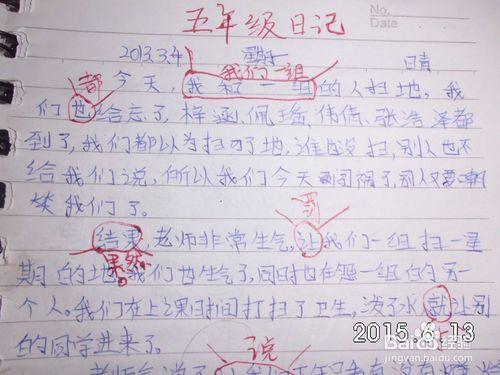 五年级日记
No.
Date
2013.3.4 星期一 日青
我们一组
都 今天，我和一组的人扫地，我
们也给忘了，梓涵，佩瑶，伟倩，张浩泽都
到了，我们都以为扫了地，谁也没扫，别人也不
给我们说，所以我们今天闯祸了，别人又要嘲
笑我们了。
罚
结果，老师非常生气，让我们一组扫一星
果然
期的地，我们也生气了，同时也在怨一组的另一
个人。我们在上课时间打扫了卫生，泼了水，就让别
的同学进来了。
说
2015.6.13
Baidu经验
jingyan.baidu.com